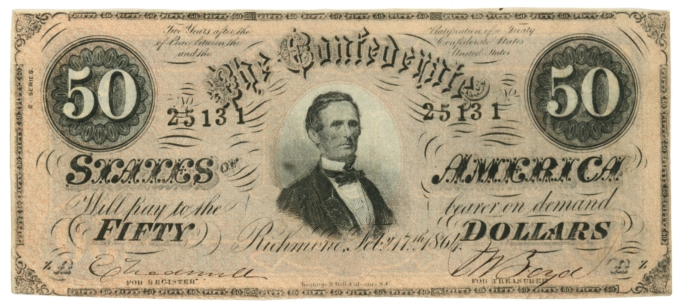 Two Years after the Ratification of a Treaty
of Peace between the Confederate States
and the United States
2 SERIES.
The Confederate
50 50
25131 25131
STATES OF AMERICA
Will pay to the bearer on demand
FIFTY DOLLARS
Richmond, Feb. 17th 1864.
FOR REGISTER FOR TREASURER